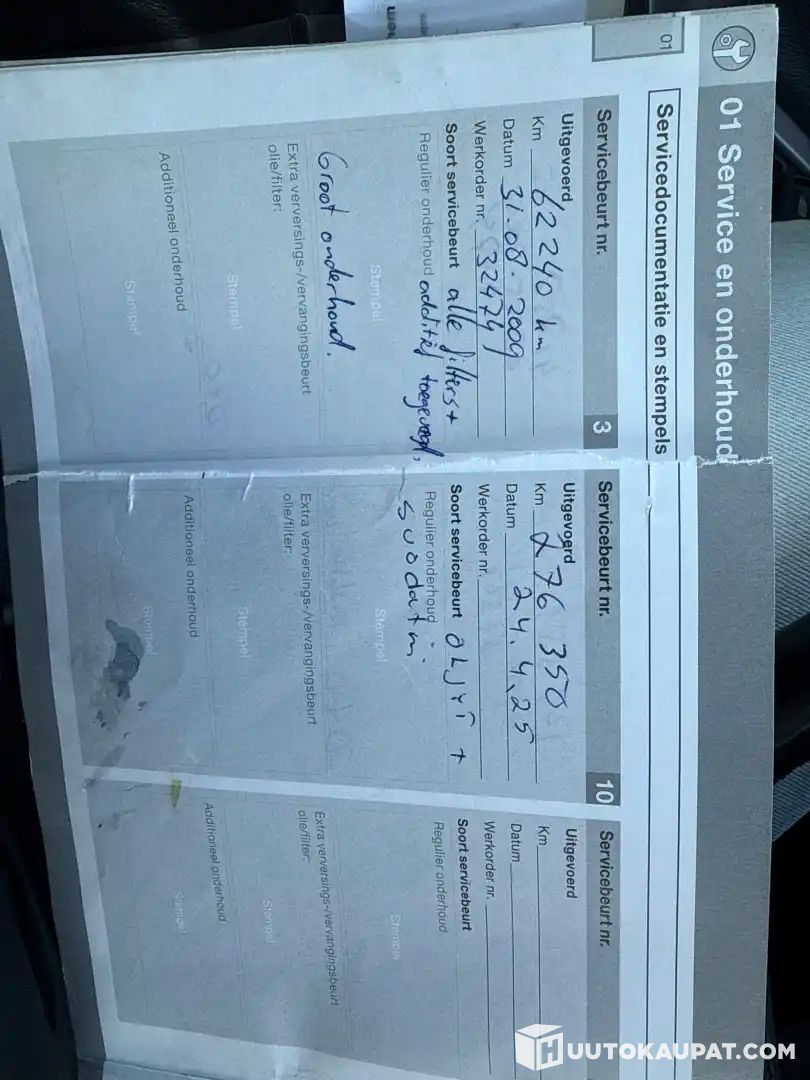 01 Service en onderhoud
01
Servicedocumentatie en stempels
Servicebeurt nr. 3
Uitgevoerd
Km 62240 km
Datum 31.08.2009
Werkorder nr. 324741
Soort servicebeurt alle filters +
Regulier onderhoud additief toegevoegd,
Stempel
Groot onderhoud.
Extra verversings-/vervangingsbeurt
olie/filter:
Stempel
Additioneel onderhoud
Stempel
Servicebeurt nr. 10
Uitgevoerd
Km 276 350
Datum 24.4.25
Werkorder nr.
Soort servicebeurt öljyt +
Regulier onderhoud
suodatin.
Stempel
Extra verversings-/vervangingsbeurt
olie/filter:
Stempel
Additioneel onderhoud
Stempel
Servicebeurt nr.
Uitgevoerd
Km
Datum
Werkorder nr.
Soort servicebeurt
Regulier onderhoud
Stempel
Extra verversings-/vervangingsbeurt
olie/filter:
Stempel
Additioneel onderhoud
Stempel
HUUTOKAUPAT.COM